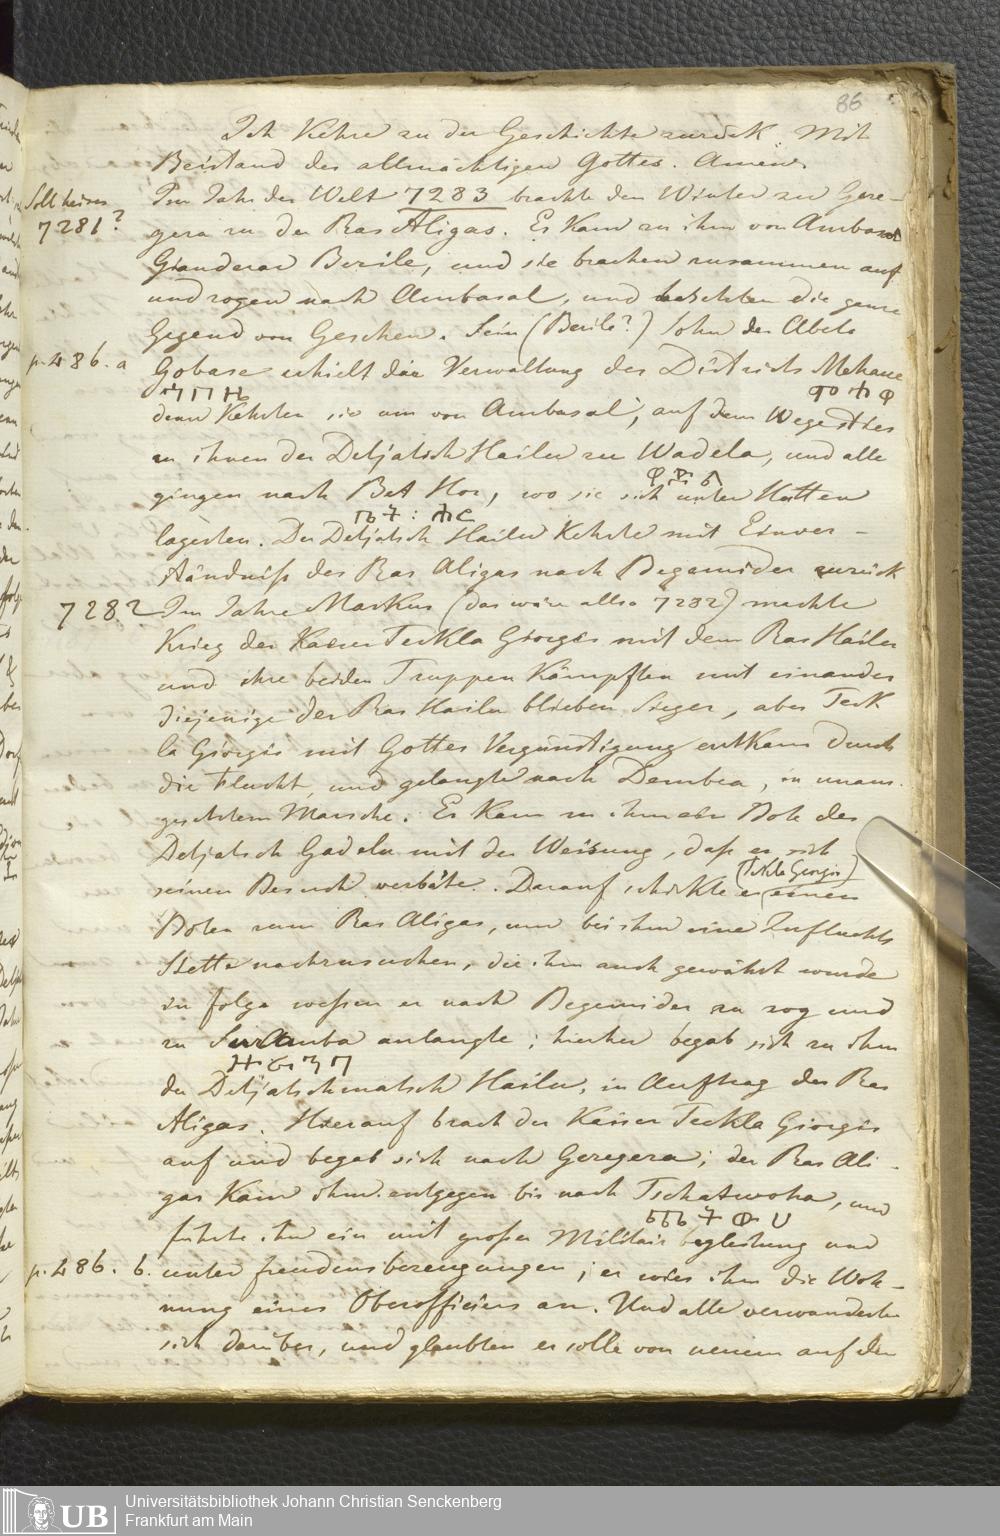 86
Ich Kehre zu der Geschichte zurück. Mit
Beistand des allmächtigen Gottes. Amen.
Soll heisen
7281?
Im Jahr der Welt 7283 brachte den Winter zu Gere-
gera zu der Ras Aligas. Es Kam zu ihm von Ambasel
Berile, und sie brachen zusammen auf
und zogen nach Ambasal, und besetzten die ganze
Gegend von Geschen. Sein (Berile?) Sohn der Abeto
p. 486. a
Gobase erhielt die Verwaltung des Districts Makane
dann Kehrten sie um von Ambasal, auf dem Wege sties
zu ihnen der Detjatsch Hailu zu Wadela, und alle
gingen nach Bet Hor, wo sie sich unter Hütten
lagerten. Der Detjatsch Hailu Kehrte mit Einver-
ständniß des Ras Aligas nach Begemider zurück
7282
Im Jahre Markus (das wäre also 7282) machte
Krieg der Kaiser Teckla Giorgis mit dem Ras Hailu
und ihre beiden Truppen Kämpften mit einander
diejenige des Ras Hailu blieben Sieger, aber Teck
la Giorgis mit Gottes Vergünstigung entkam durch
die Flucht, und gelangte nach Dembea, in unaus-
gesetztem Marsche. Es Kam zu ihm ein Bote des
Detjatsch Gadelu mit der Weisung, daß er sich
seinen Besuch verbäte. Darauf schickte er (Tekla Giorgis) einen
Boten zum Ras Aligas, um bei ihm eine Zufluchts
Stette nachzusuchen, die ihm auch gewährt wurde
in folge wessen er nach Begemider zu zog und
zu anlangte; hierher begab sich zu ihm
der Detjatschmatsch Hailu, in Auftrag des Ras
Aligas. Hierauf brach der Kaiser Teckla Giorgis
auf und begab sich nach Geregera; der Ras Ali-
gas Kam ihm entgegen bis nach Tschatwoha, und
führte ihn ein mit großer Militair begleitung und
p. 486. b.
unter freudensbezeugungen; er wies ihm die Woh-
nung eines Oberofficiers an. Und alle verwunderten
sich darüber, und glaubten er solle von neuem auf den
UB
Universitätsbibliothek Johann Christian Senckenberg
Frankfurt am Main